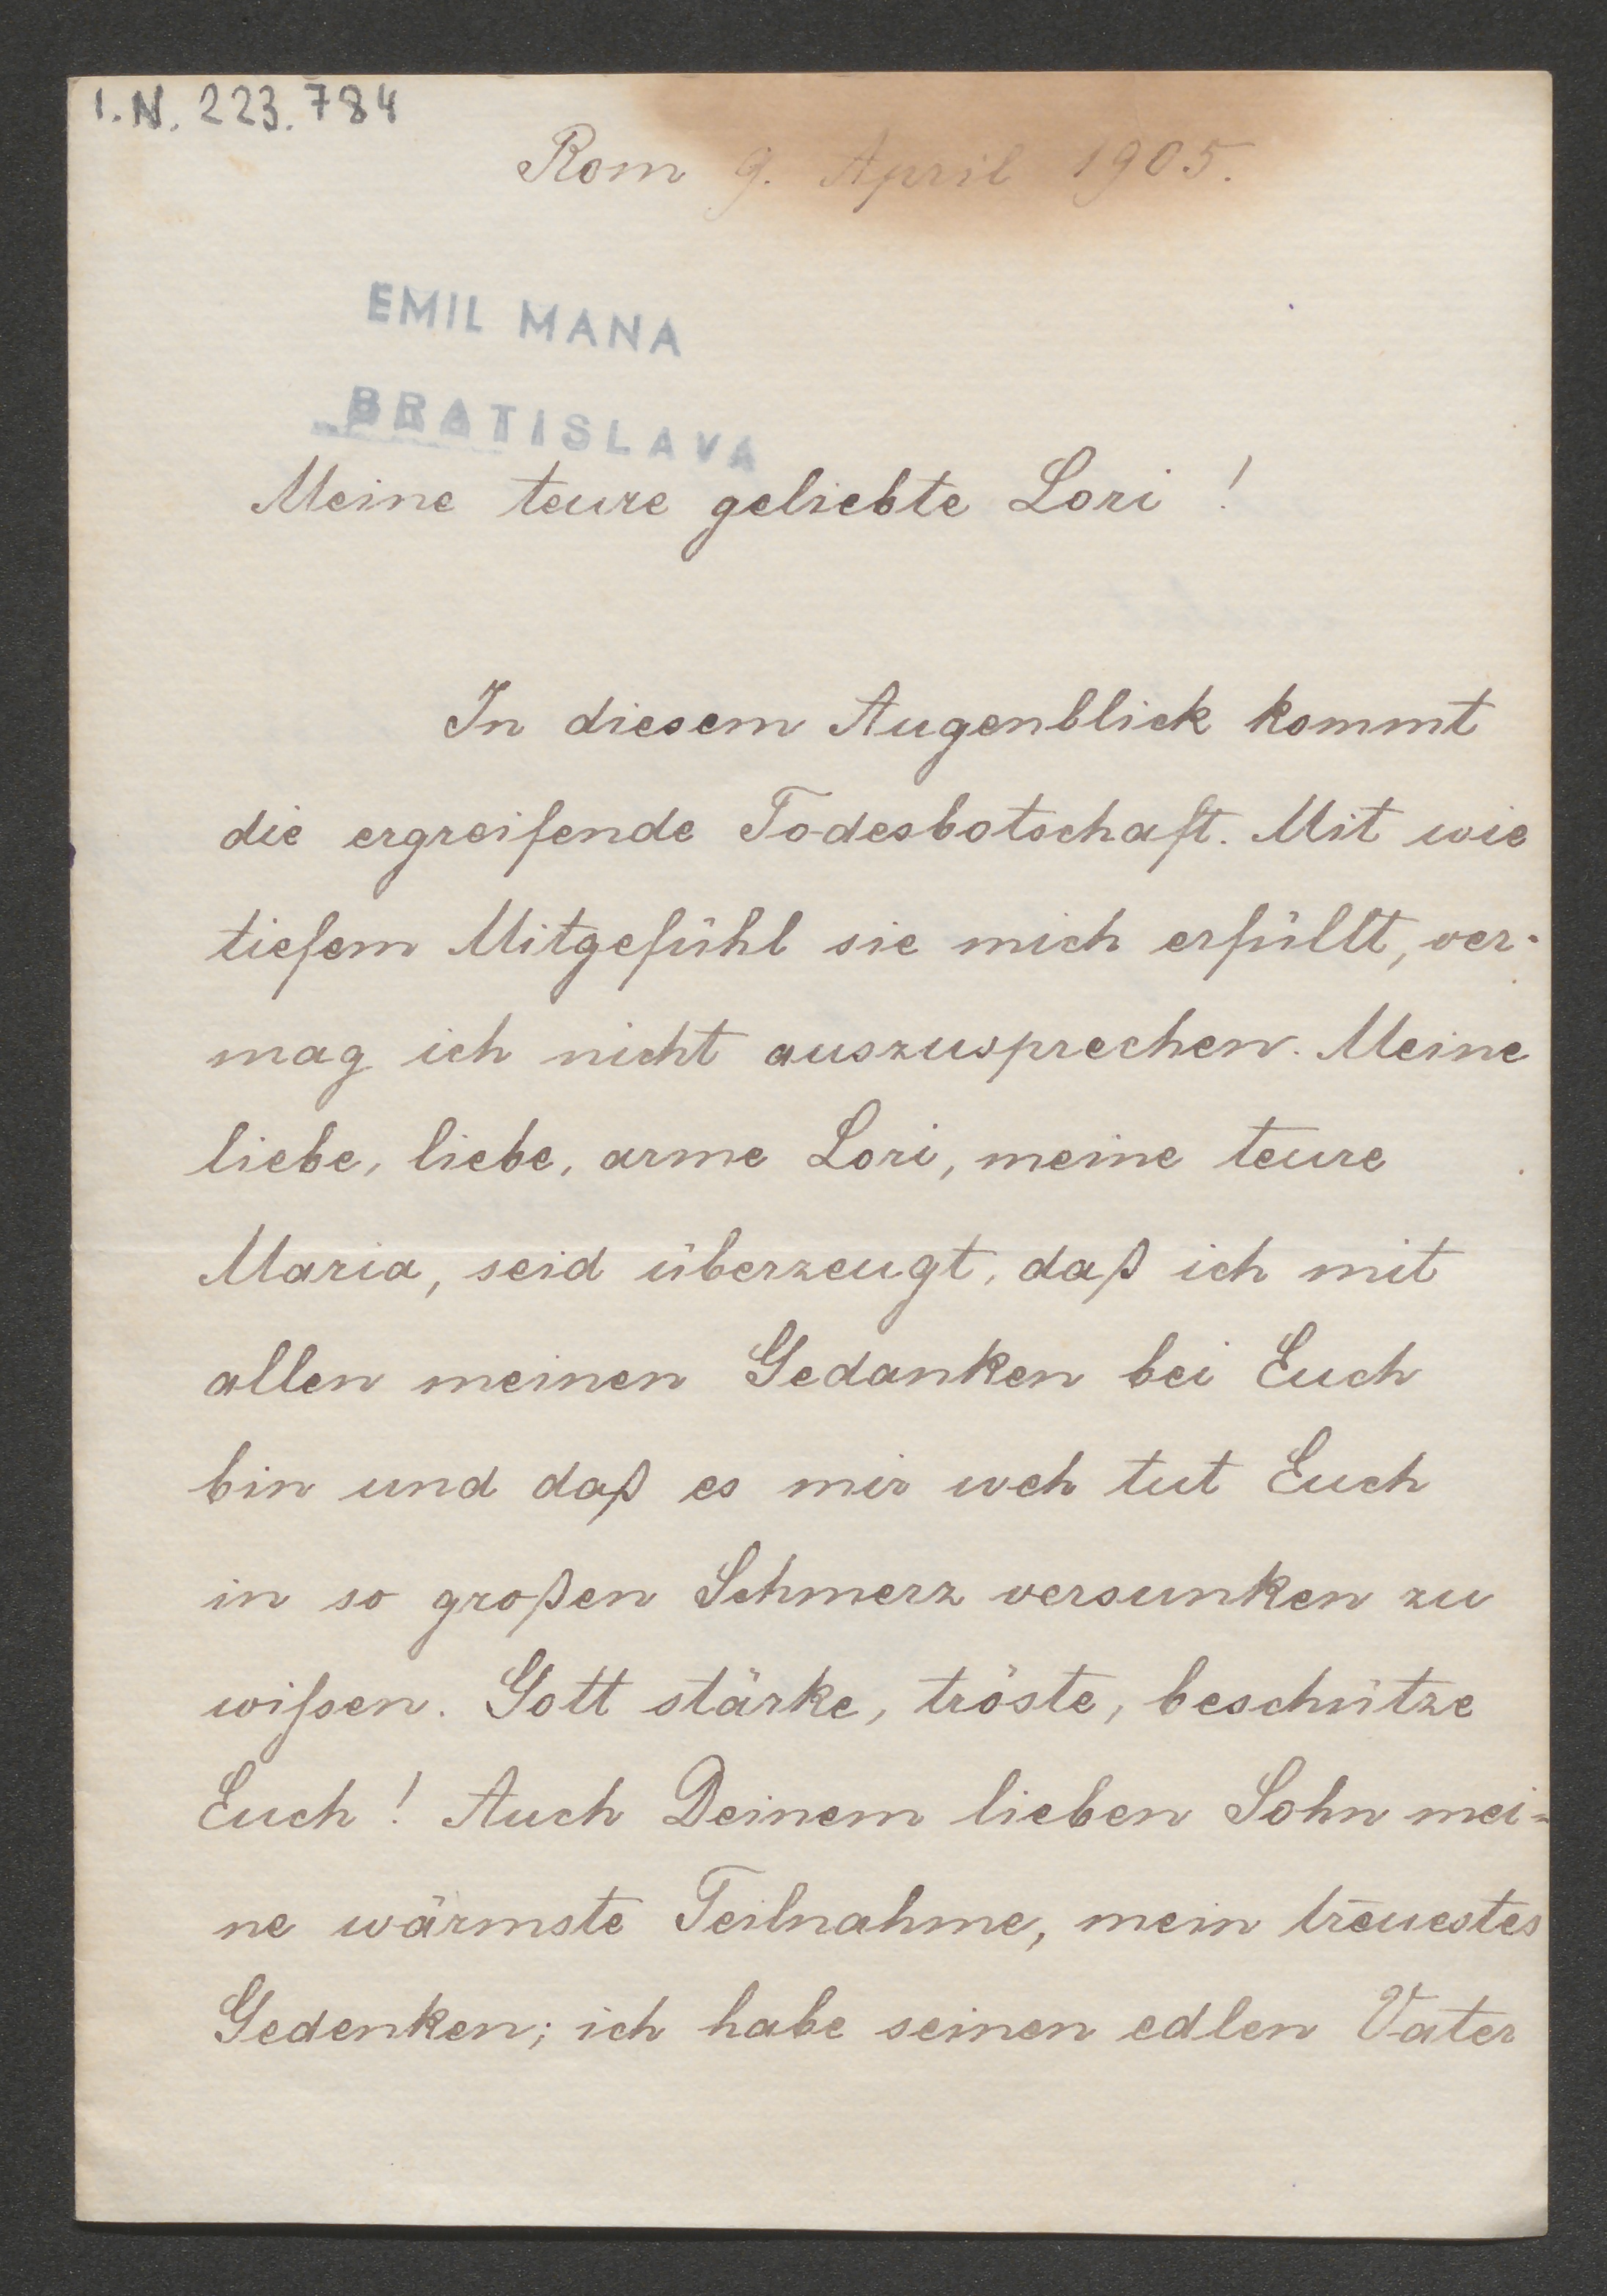 I.N. 223.784
Rom 9. April 1905.
EMIL MANA
BRATISLAVA
Meine teure geliebte Lori !
In diesem Augenblick kommt
die ergreifende Todesbotschaft. Mit wie
tiefem Mitgefühl sie mich erfüllt, ver-
mag ich nicht auszusprechen. Meine
liebe, liebe, arme Lori, meine teure
Maria, seid überzeugt, daß ich mit
allen meinen Gedanken bei Euch
bin und daß es mir weh tut Euch
in so großen Schmerz versunken zu
wißen. Gott stärke, tröste, beschütze
Euch ! Auch Deinem lieben Sohn mei=
ne wärmste Teilnahme, mein treuestes
Gedenken; ich habe seinen edlen Vater